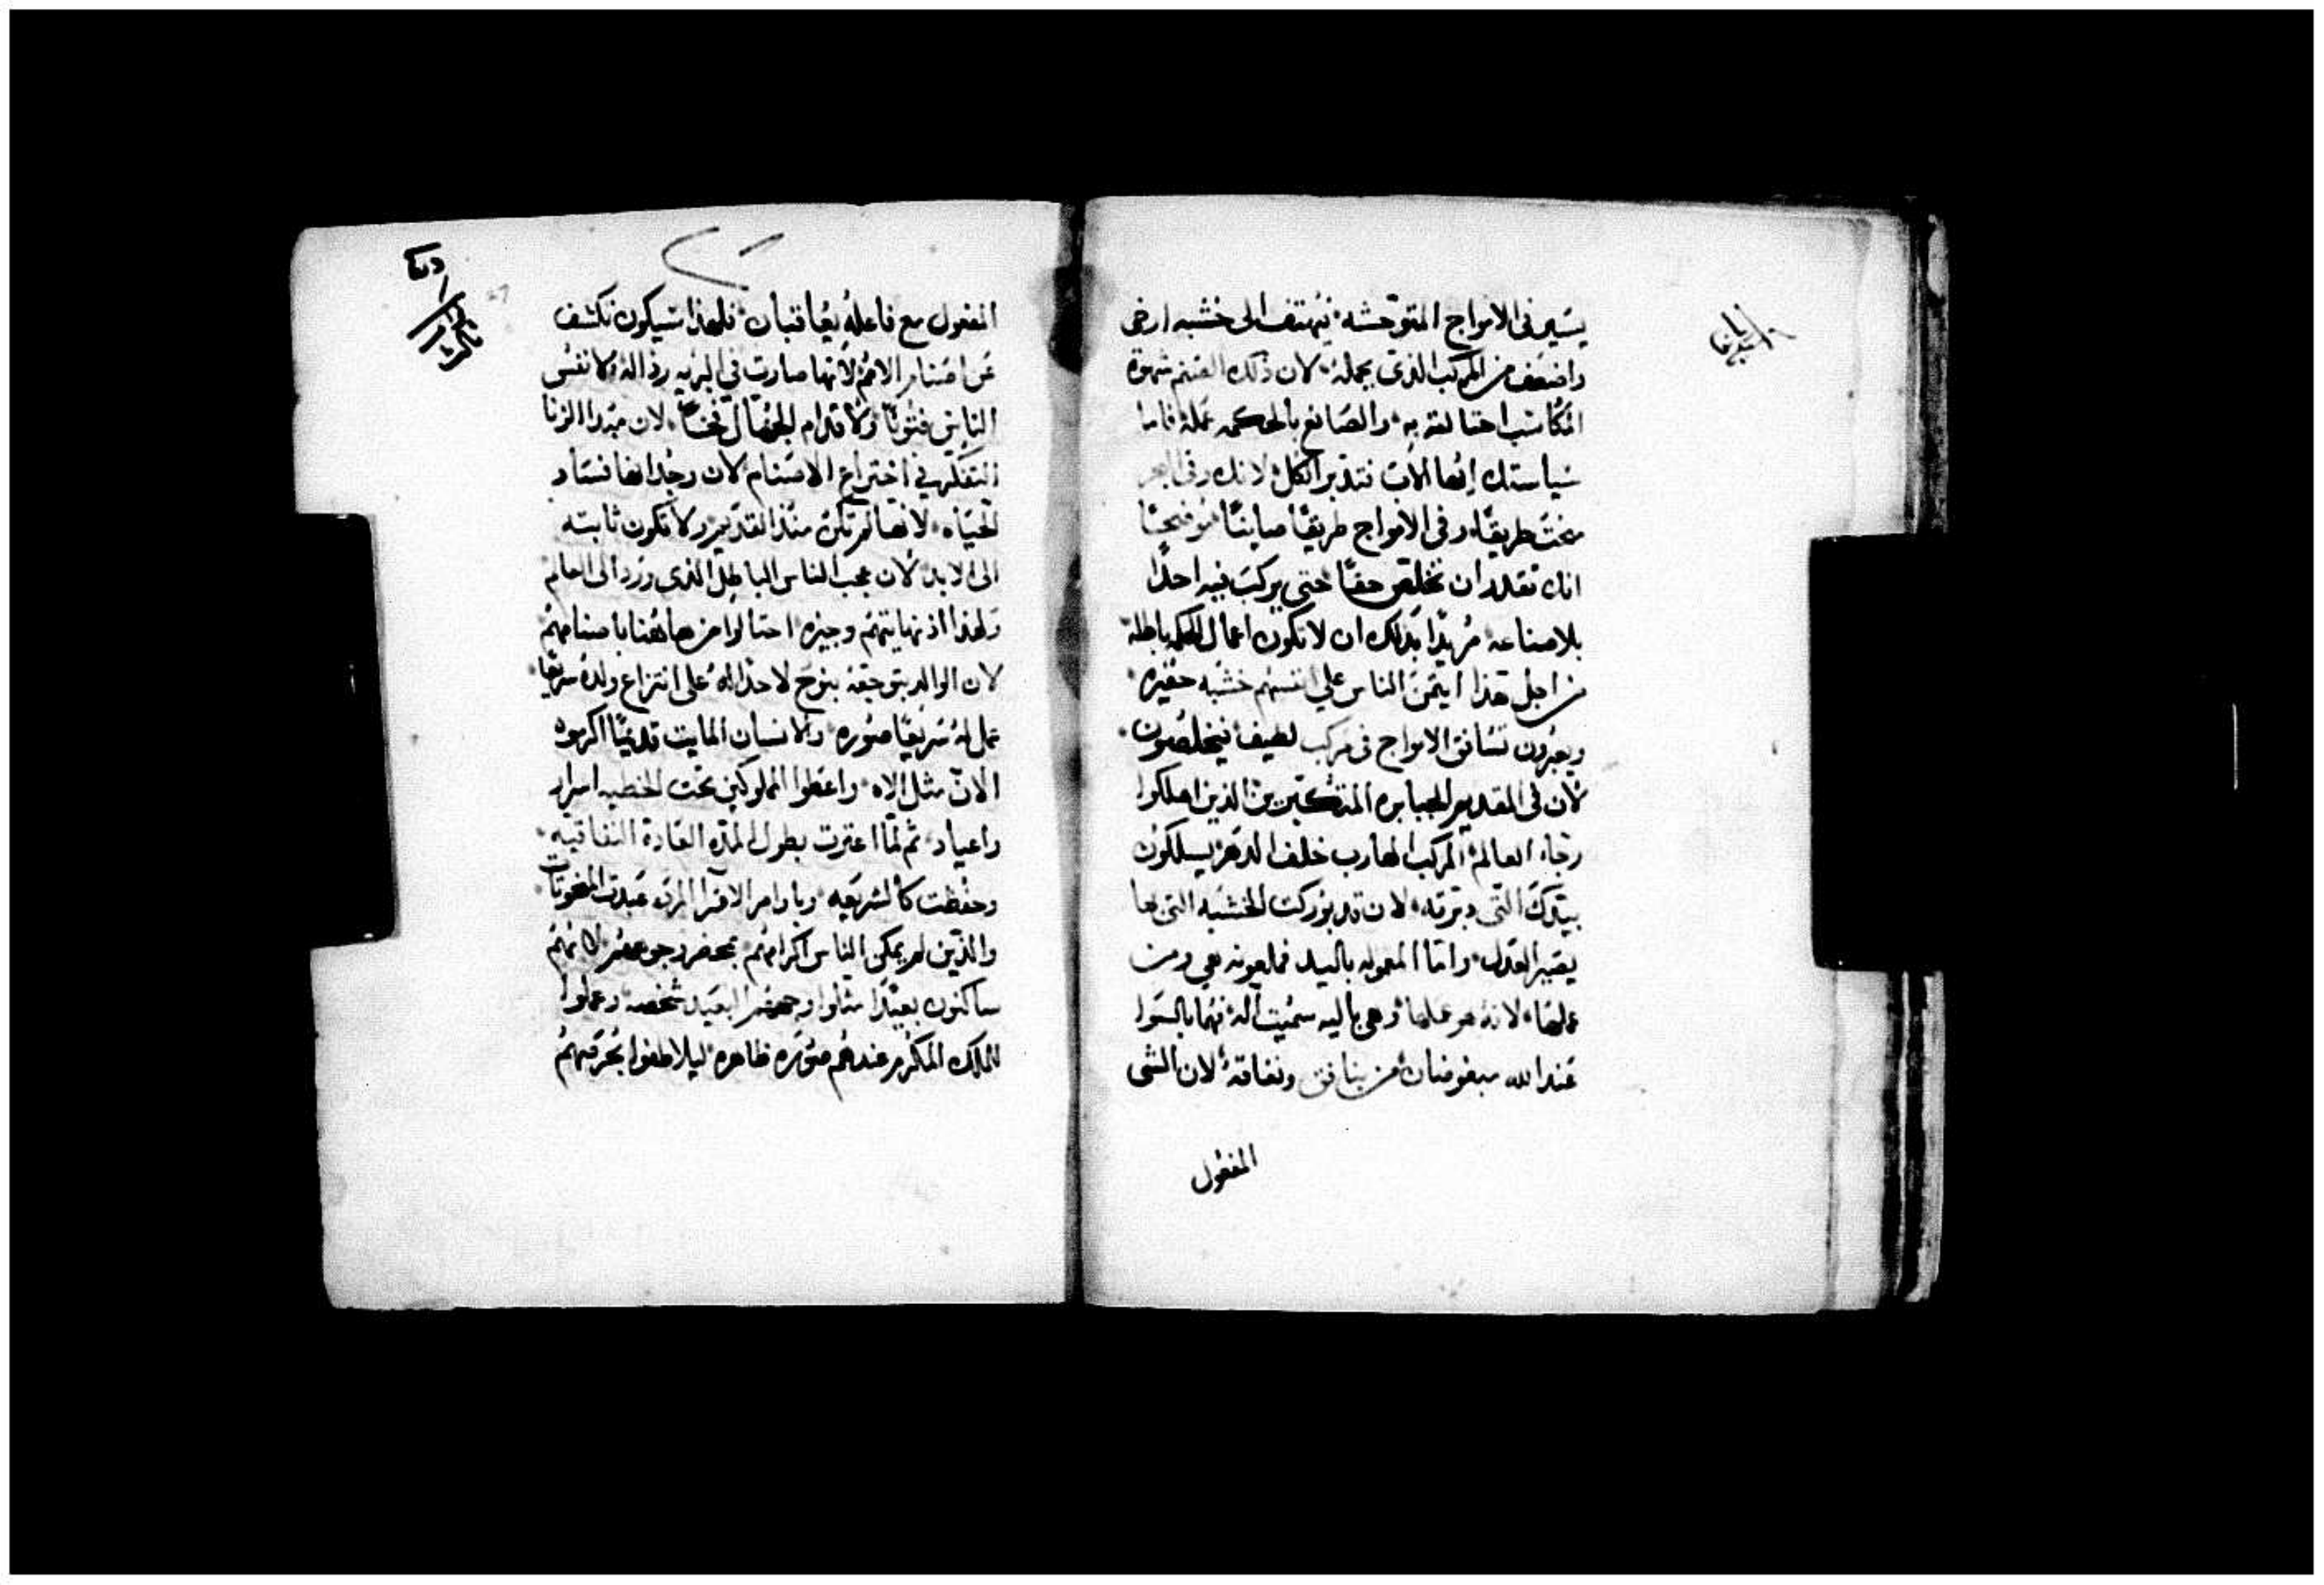 يسير في الامواج المتوحشه فيهتف الى خشبه ارخى
واضعف من المركب الذى يحمله لان ذلك الصنم شهوة
المكاسب احتالت به والصانع بالحكمه عمله فاما
سياستك ايها الاب فتدبر الكل لانك وفى البحر
منحت طريقا وفى الامواج طريقا صاينا موضحا
انك تقدر ان تخلص حقا حتى يركب فيه احدا
بلا صناعه مريدا بذلك ان لا تكون اعمال الحكمه باطله
من اجل هذا ايتمن الناس على انفسهم خشبه حقيره
ويعبرون تشافق الامواج في مركب لطيف فيخلصون
لان فى القديم الجبابره المتكبرين الذين اهلكوا
رجاء العالم المركب الهارب خلف الدهر يسلكون
بيدك التى دبرته لان قد بوركت الخشبه التى بها
يصير العدل واما المعموله باليد فملعونه هى ومن
عملها لانه هو عملها وهى باليه سميت اله فهما بالسوا
عند الله مبغوضان من ينافق ونفاقه لان الشى
المفعول
المفعول مع فاعله يعاقبان فلهذا سيكون تكشف
عن اصنام الامم لانها صارت في البريه رذاله ولانفس
الناس فتونا ولاقدام الجهال فخا لان مبدا الزنا
التفكر في اختراع الاصنام لان وجدانها فساد
الحياه لانها لم تكن منذ القديم ولا تكون ثابته
الى الابد لان عجب الناس الباطل الذى ورد الى العالم
ولهذا اذ نهايتهم وجيزه احتالوا من هاهنا باصنامهم
لان الوالد بتوجعه بنوح لاحد اله على انتزاع ولده سريعا
عمل له سريعا صوره والانسان المايت قديما اكرموه
الان مثل الاه واعطوا المملوكين تحت الخطيه اسرار
واعياد ثم لما اعتزت بطول المده العادة النفاقيه
وحفظت كالشريعه وباوامر الاقرا المرده عبدت المنحوتات
والذين لم يمكن الناس اكرامهم بمحضر وجوههم لانهم
ساكنون بعيدا مثلوا وجههم البعيد شخصه وعملوا
للملك المكرم عندهم صوره ظاهره ليلاطفوا بحرقتهم